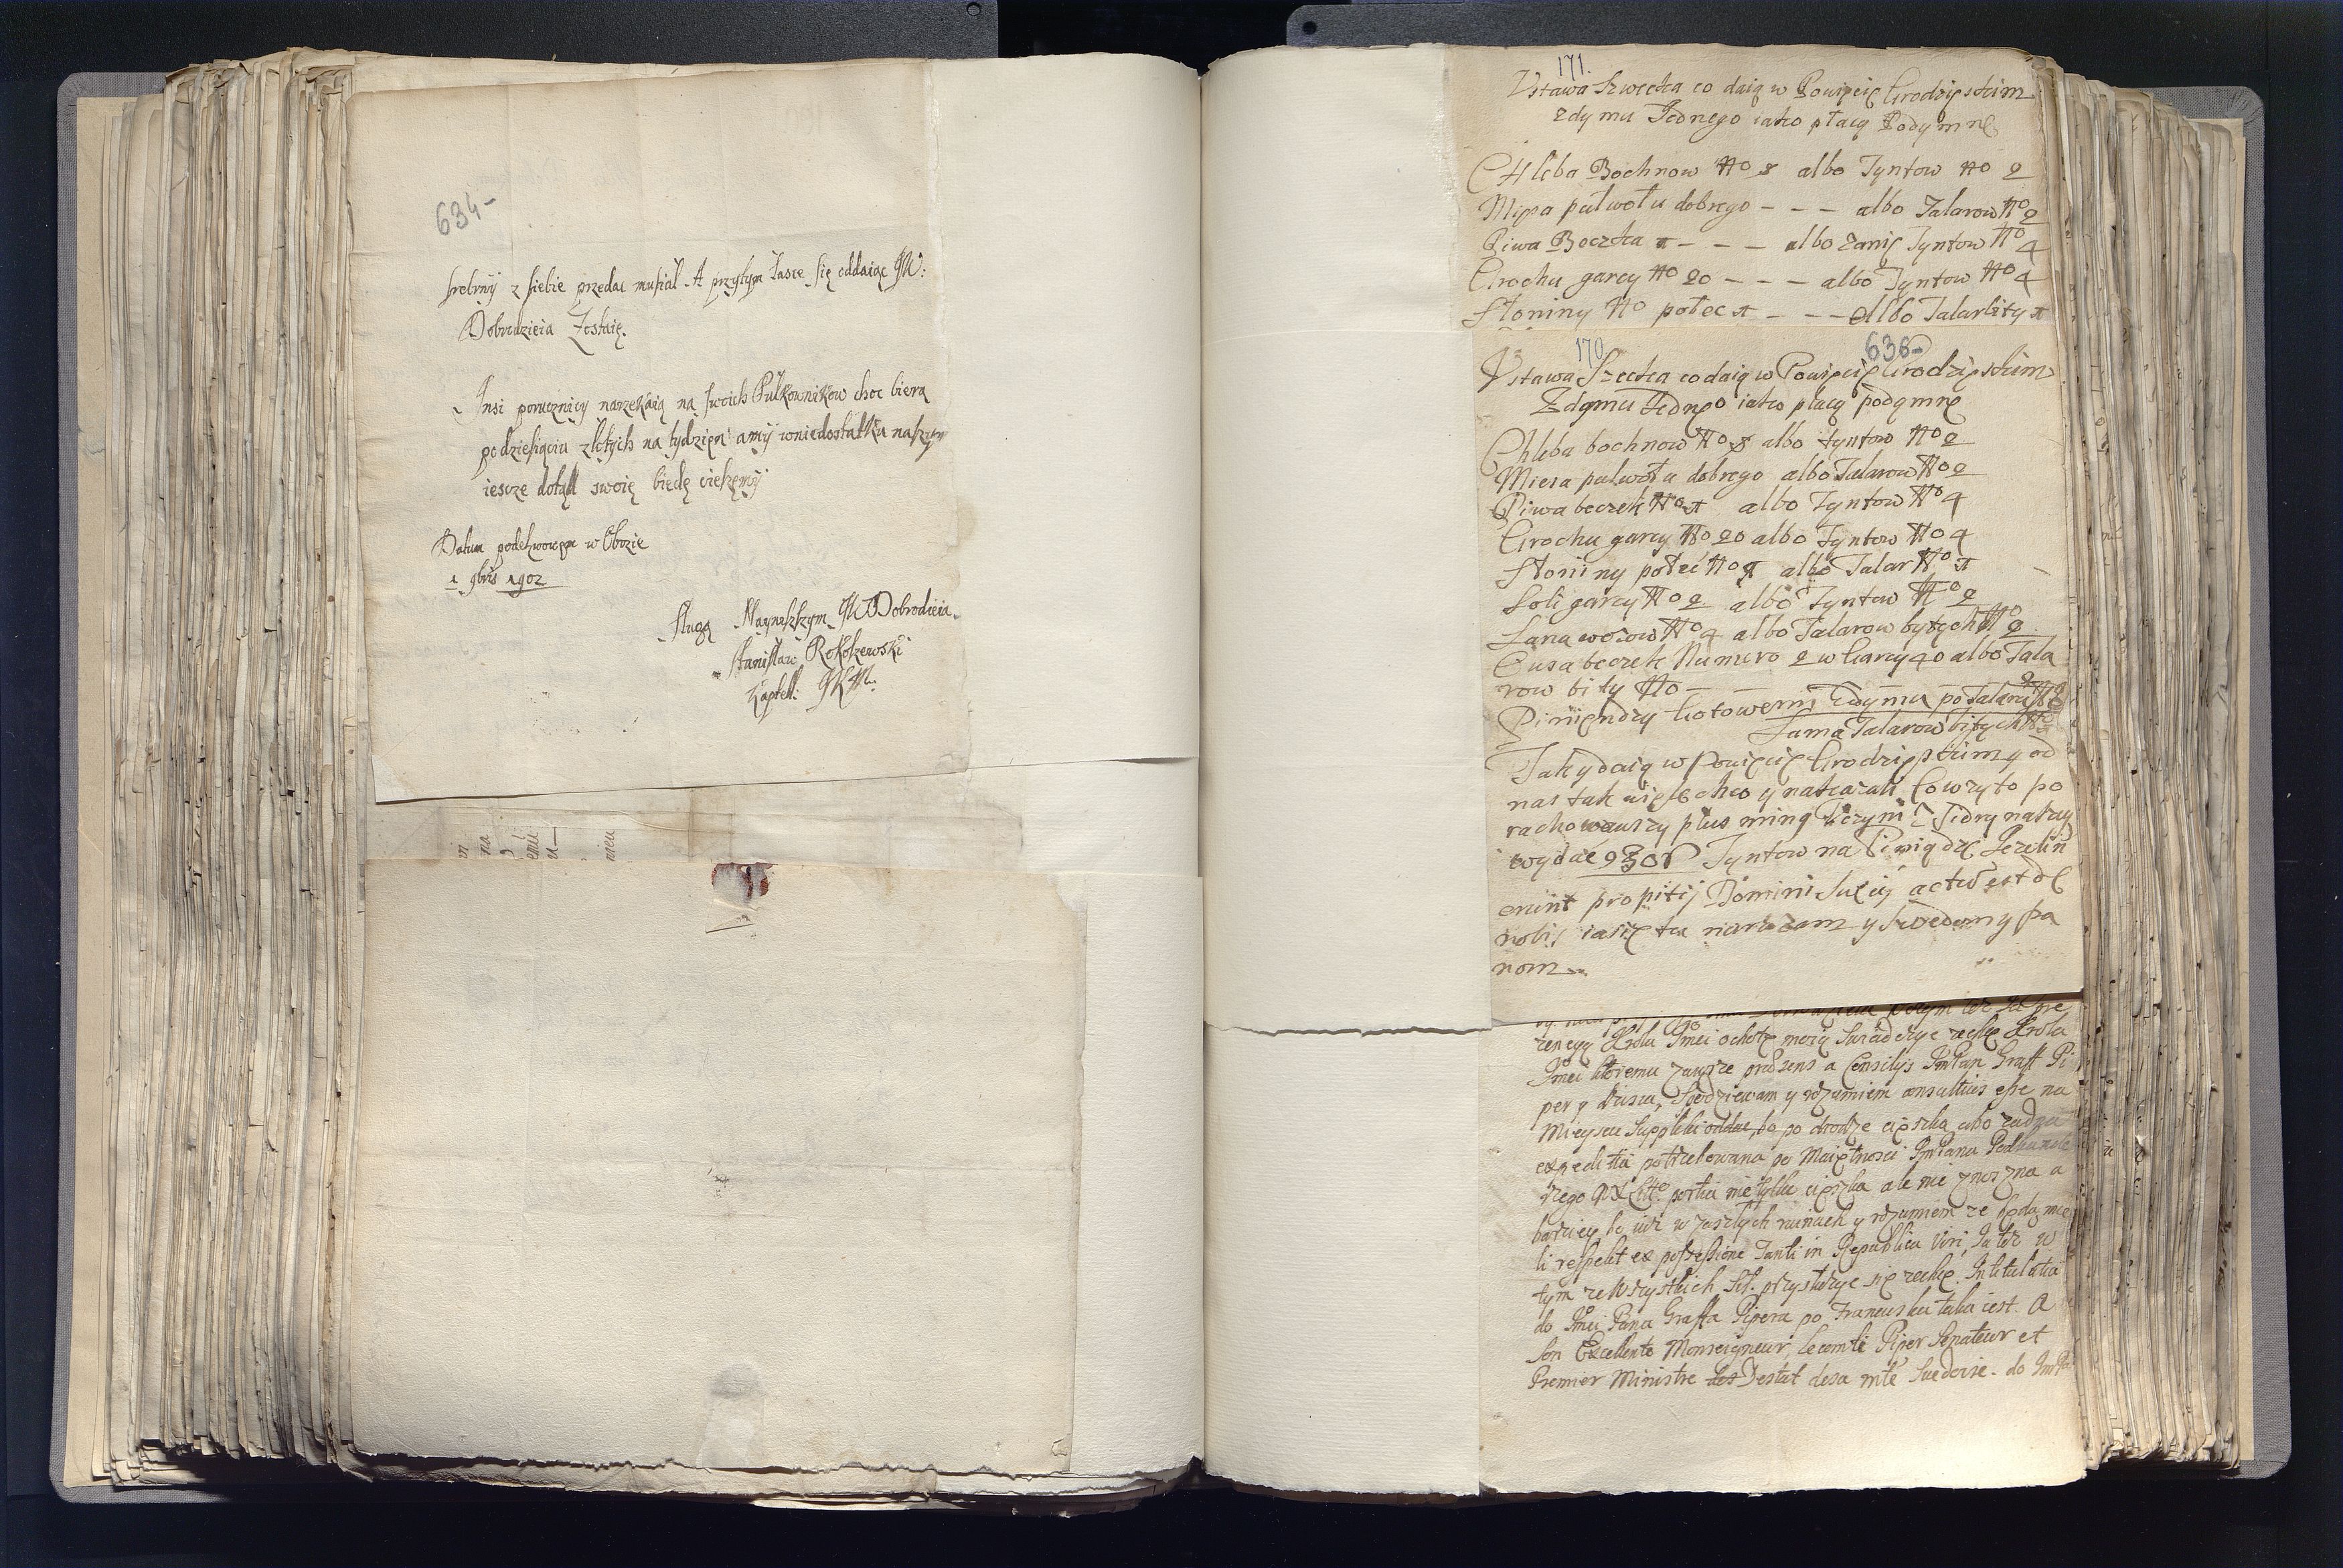 634-
srebrny z siebie przedac musiał. A przytym Łasce się oddaiąc JM:
Dobrodzieia Zostaię.
Insi porucznicy narzekaią na swoich Pułkownikow choc biera
po dziesięciu złotych na tydzień a my w niedostatku naszym
iescze dotąd swoię biedę
Datum pode Lwowem w Obozie
1 9bris 1702
Sługą Nayniszszym JM Dobrodzieia
Stanisław Rokoszewski
171.
Vstawa Szwecka co daią w Powięcię Grodzięskim
z dymu Jednego iako płacą Podymnę
CHleba Bochnow No 8 albo Tynfow No 2
Mięsa pułwołu dobrego - - - albo Talarow No 2
Piwa Beczka 1 - - - albo zanię Tynfow No 4
Grochu garcy No 20 - - - albo Tynfow No 4
Słoniny No połec 1 - - - albo Talar bity 1
170
636-
Vstawa Szwecka co daią w Powięcię Grodzięskim
Zdymu Jednego iako płacą podymnę
Chleba bochnow No 8 albo tynfow No 2
Miesa pulwołu dobrego albo Talarow No 2
Piwa beczek No 1 albo Tynfow No 4
Grochu garcy No 20 albo Tynfow No 4
Słoniny połeć No 1 albo Talar No 1
Soli garcy No 2 albo Tynfow No 2
Siana wozow No 4 albo Talarow bytych No 2
Owsa beczek Numero 2 w Garcy 40 albo Tala
row bity No - -
Pinięndzy Gotowemi Zdymu po Talaru No 2
Suma Talarow bitych No
Tak y daią w Powięcię Grodzięskim y od
nas tak więle chco y nakazali Co wszyto po
rachowawszy plus minq liczym z Jedny natury
wydać Tynfow na Piniądzę Jezeli n
erint propitij Domini Sueci actu est dę
nobis iasię tu narazam y Szwedom y pa
nom
zenego Krola Jmci ochotę moię swiadczyc zechcę Krola
Jmci ktoremu zawsze præsens a Consilys JmPan Graff Pi
per y bliscu, Spodziewam y rozumiem consultius esse na
Mieyscu Supplik oddac, bo po drodze cięszka albo zadna
expeditia potrzebowana po Maiętnosci JmPana
portii nie tylko cięszka ale nie znoszna a
bardziey bo iuz w zaszłych ruinach y rozumiem ze będą mie
li respekt ex possessione Tanti in Republica Viri, Ja tez w
tym ze Wszystkich Sił przysłuzyc się zechcę. Intitulatia
do Jmci Pana Graffa Pipera po Francusku taka iest. A
Son Excellente Monseigneur le comte Piper Senateur et
Premier Ministre Destat desa mte Suedoise. do JmP